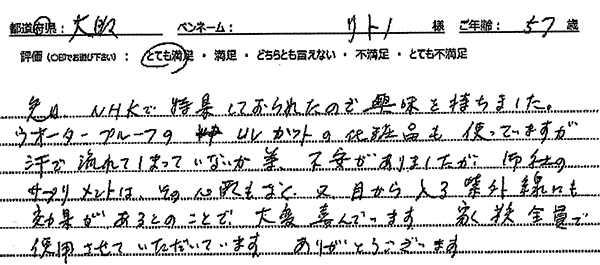 都道府県： 大阪 ペンネーム： リトノ 様 ご年齢： 57 歳
評価（○印でお選び下さい） とても満足 ・ 満足 ・ どちらとも言えない ・ 不満足 ・ とても不満足
先日、NHKで特集しておられたので興味を持ちました。
ウオータープルーフの UVカットの化粧品も使っていますが
汗で流れてしまっていないか等、不安がありましたが、御社の
サプリメントは、その心配もなく、又目から入る紫外線にも
効果があるとのことで、大変喜んでいます 家族全員で
使用させていただいています ありがとうございます